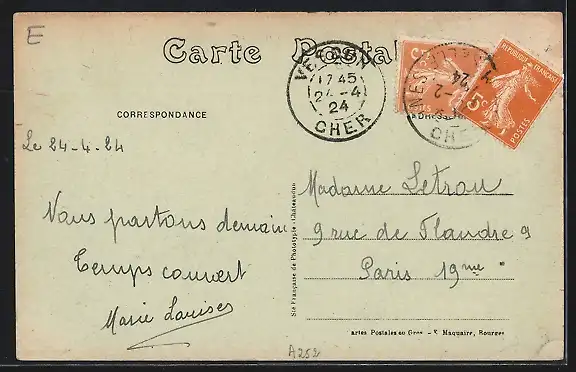 E
Carte Postale
CORRESPONDANCE
Le 24-4-24
Nous partons demain
Temps couvert
Marie Louise
17 45
24-4
24
CHER
REPUBLIQUE FRANÇAISE
5c
POSTES
Madame Letrou
9 rue de Flandre 9
Paris 19me
Sté Française de Phototypie - Châteaudun
artes Postales en Gros - S. Maquaire, Bourges
A252